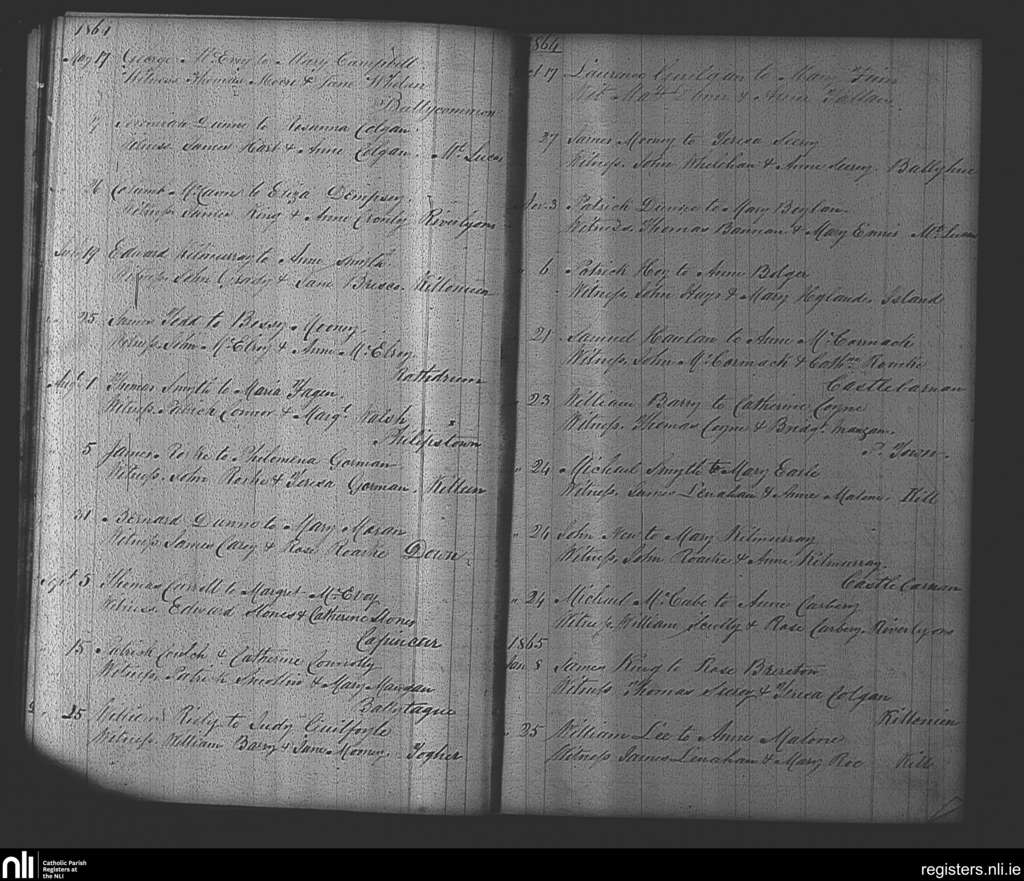 1864
May 17 George McEvoy to Mary Campbell
Witness Thomas Moore & Jane Whelan
Ballycommon
Jeremiah Dunne to Rosanna Colgan
Witness James Hart & Anne Colgan. Mt. Lucas
Columb McCann to Eliza Dempsey
Witness James King & Anne Cronily Riverlyons
19 Edward Kilmurray to Anne Smyth
Witness John Grady & Jane Brisco. Killoneen
25 James Todd to Bessy Mooney
Witness John McElroy & Anne McElroy
Rathdrum
Augt. 1 Thomas Smyth to Maria Fagan
Witness Patrick Connor & Margt. Walsh
Philipstown
5 James Rorke to Philomena Gorman
Witness John Rorke & Teresa Gorman. Killeen
31 Bernard Dunne to Mary Moran
Witness James Carey & Rose Roarke Down
Sept 5 Thomas Conroll to Margret McEvoy
Witness Edward Stones & Catherine Stones
Capincur
15 Patrick & Catherine Connolly
Witness, Patrick & Mary
Ballytague
25 to Judy Guilfoyle
Witness William Barry & Jane Mooney. Togher
1864
Oct 17 Laurence to Mary
Wit Matt & Anne
27 James Mooney to Teresa Seery
Witness John Whelehan & Anne Seery.
Nov. 3 Patrick Dunne to Mary Boylan
Witness. Thomas Bannan & Mary Ennis Mt Lucas
" 6 Patrick Hoy to Anne Bolger
Witness John Hays & Mary Hyland. Island
21 Samuel Hanlan to Anne McCormack
Witness. John McCormack & Cathne
Castle Carnan
" 23 William Barry to Catherine Coyne
Witness. Thomas Coyne & Bridgt. Mangan.
P. Town.
" 24 Michael Smyth to Mary Earle
Witness. James Lenahan & Anne Malone. Kill
" 24 John to Mary Kilmurray
Witness. John Roarke & Anne Kilmurray.
Castle Carnan
" 24 Michael McCabe to Anne Carbery
Witness. William Scully & Rose Carbery. Riverlyons
1865
Jan 8 James King to Rose Brereton
Witness Thomas Seery & Teresa Colgan
Killoneen
" 25 William Lee to Anne Malone
Witness James Lenahan & Mary Roe Kill
nli
Catholic Parish
Registers at
the NLI
registers.nli.ie